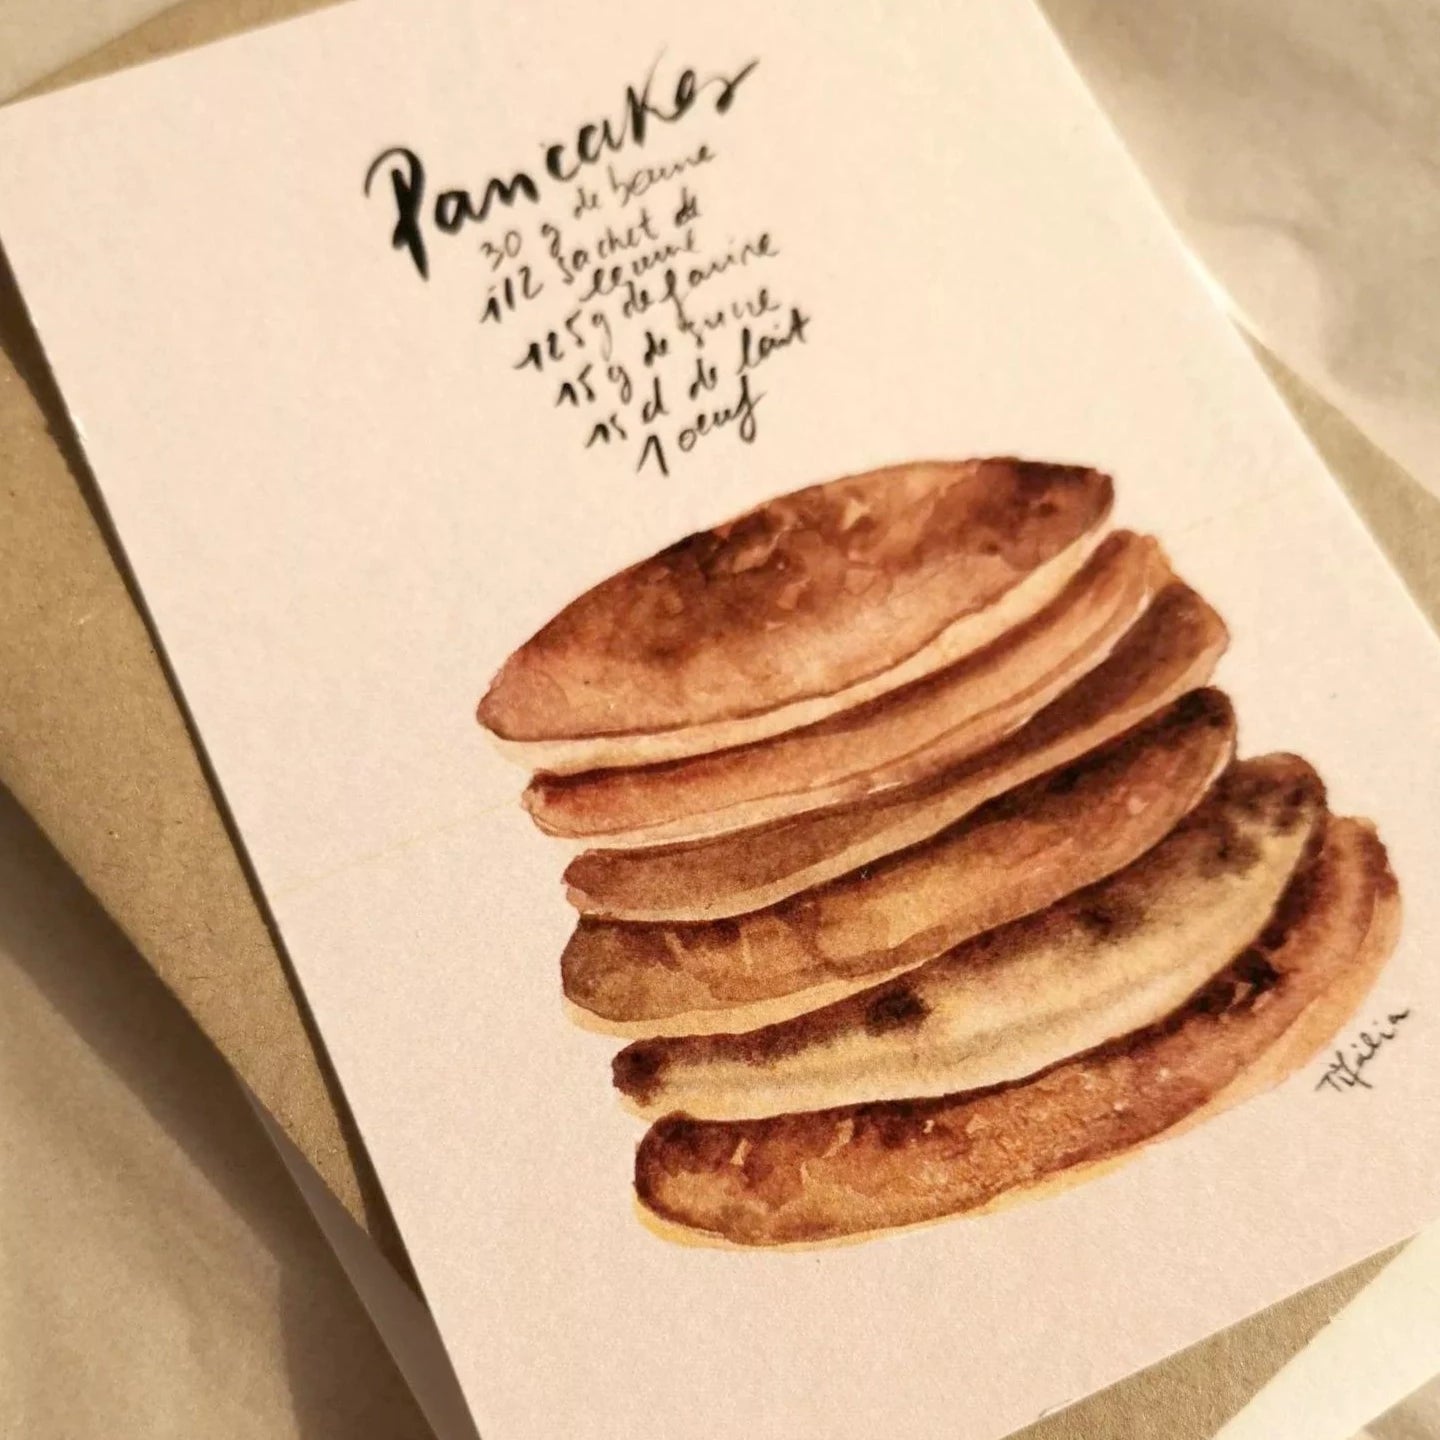 Pancakes
30 g de beurre
1/2 sachet de
levure
125g de farine
15g de sucre
15 cl de lait
1 oeuf